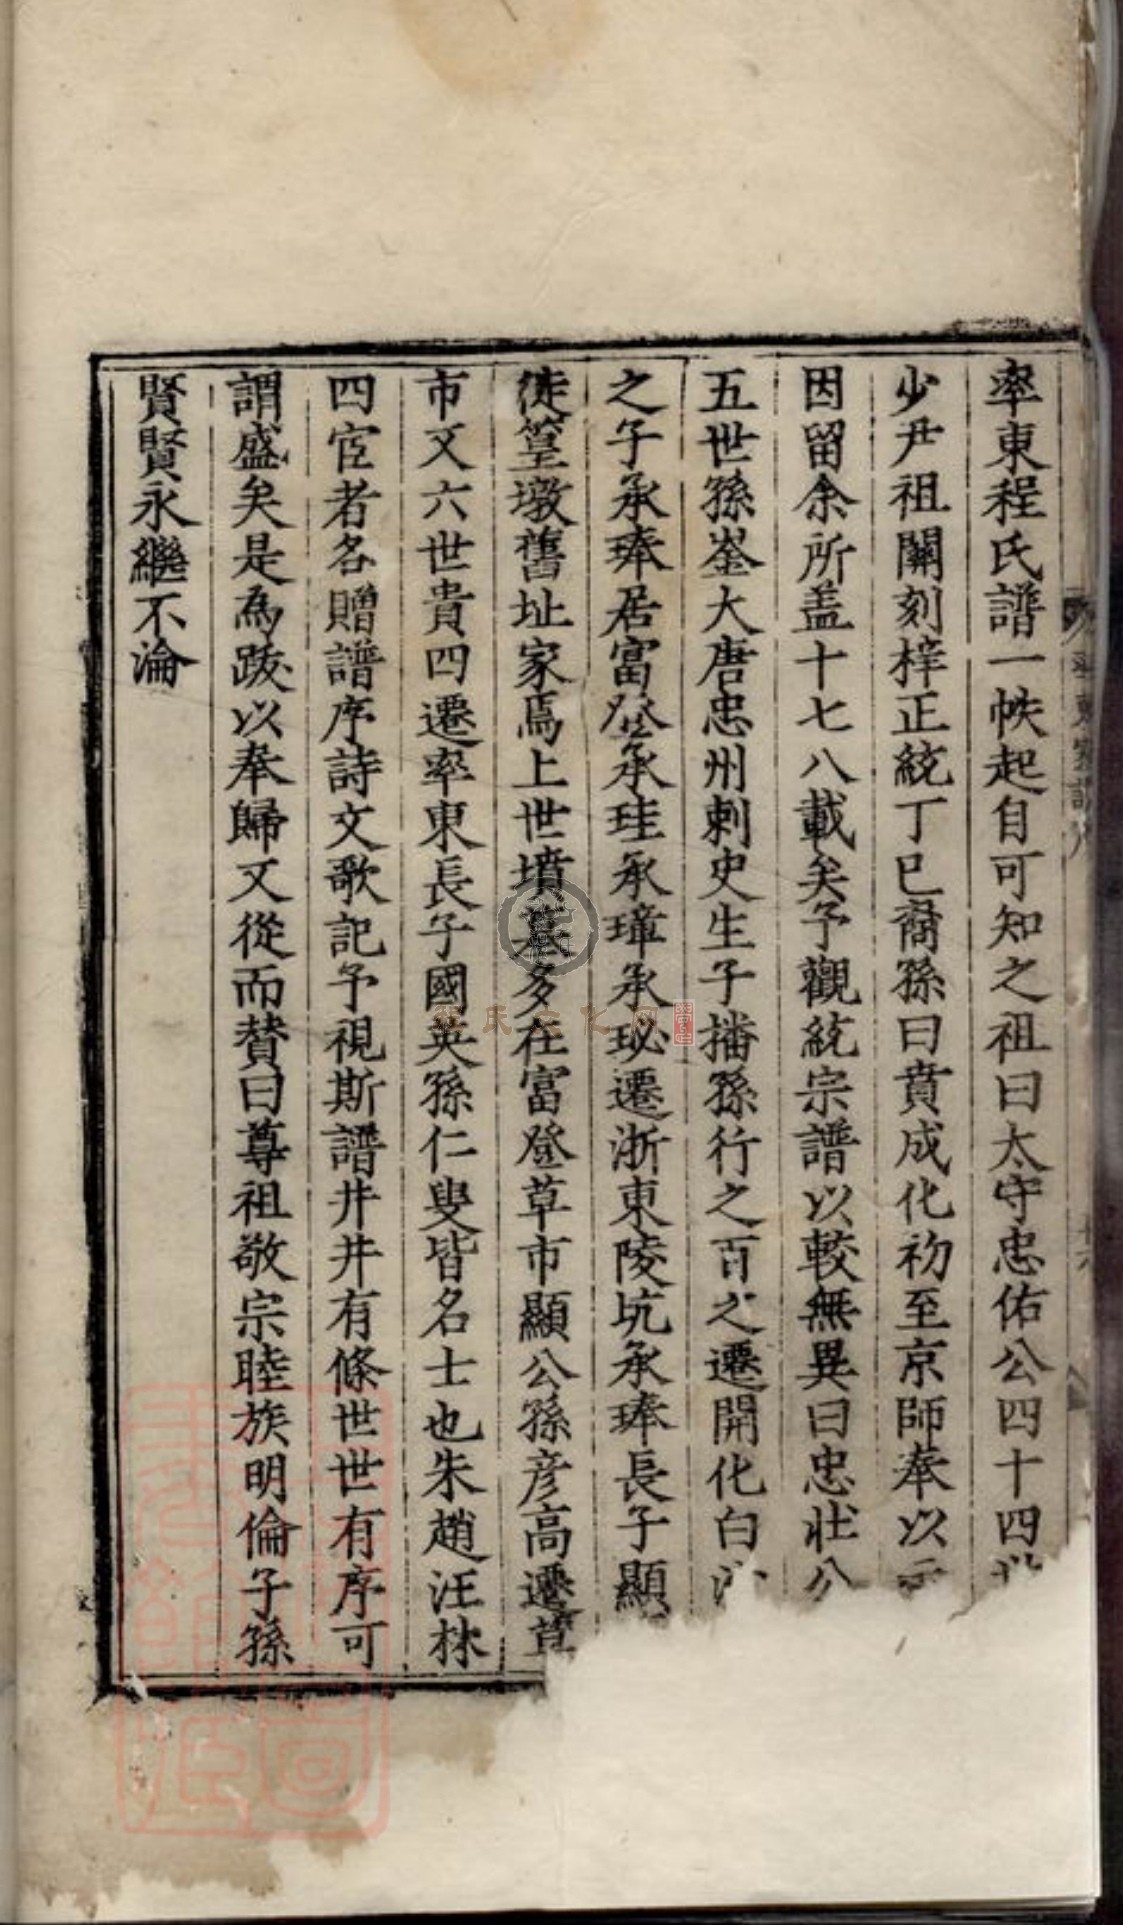 率東程氏譜一帙起自可知之祖曰太守忠佑公四十四世
少尹祖關刻梓正統丁巳裔孫曰賁成化初至京師奉以示
因留余所盖十七八載矣予觀統宗譜以較無異曰忠壯公
五世孫崟大唐忠州刺史生子播孫行之百之遷開化白
之子承琫居富登承珪承璋承珌遷浙東陵坑承琫長子顯
徙篁墩舊址家焉上世墳墓多在富登草市顯公孫彦高遷草
市又六世貴四遷率東長子國英孫仁叟皆名士也朱趙汪林
四宦者各贈譜序詩文歌記予視斯譜井井有條世世有序可
謂盛矣是爲跋以奉歸又從而賛曰尊祖敬宗睦族明倫子孫
賢賢永繼不淪